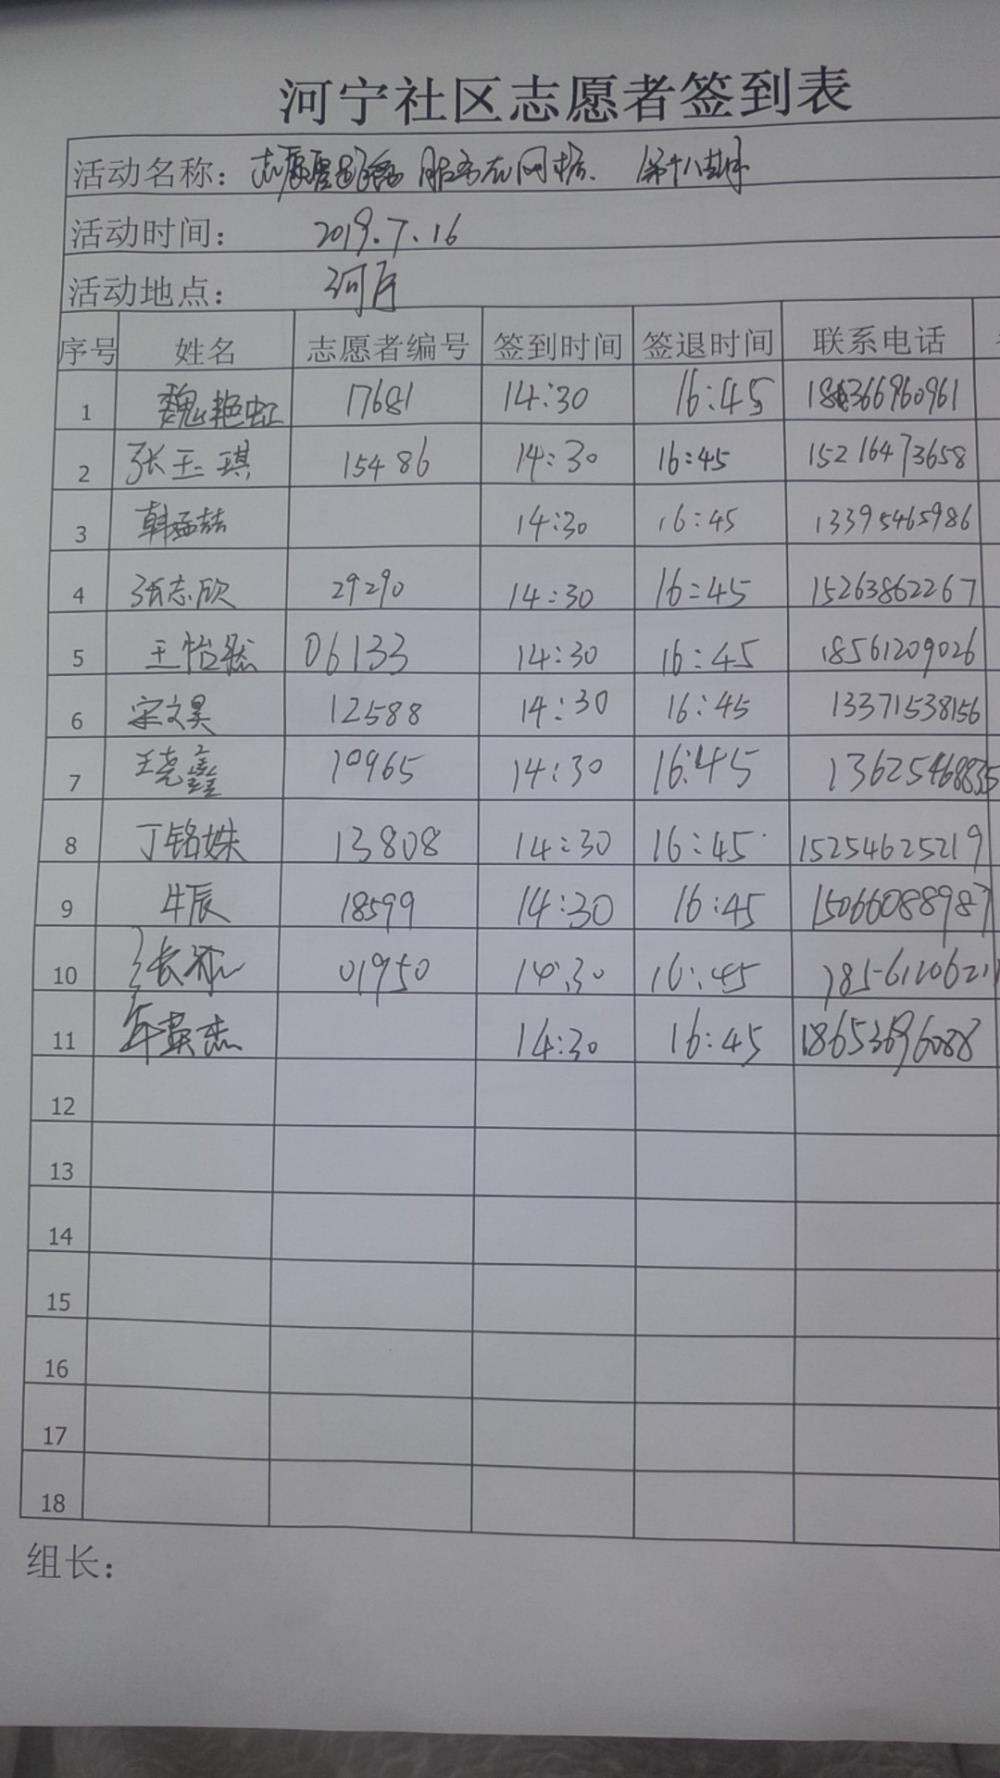 河宁社区志愿者签到表
活动名称: 志愿 服务在网格. 第十八期
活动时间: 2019.7.16
活动地点: 河宁
序号 姓名 志愿者编号 签到时间 签退时间 联系电话
1 魏艳虹 17681 14:30 16:45 18366960961
2 张玉琪 15486 14:30 16:45 15216473658
3 韩孟喆 14:30 16:45 13395465986
4 张志欣 29290 14:30 16:45 15263862267
5 王怡然 06133 14:30 16:45 18561209026
6 宋文昊 12588 14:30 16:45 13371538156
7 王尧鑫 10965 14:30 16:45 13625468835
8 丁铭姝 13808 14:30 16:45 15254625219
9 牛辰 18599 14:30 16:45 15066088987
10 张 01950 14:30 16:45
11 年英杰 14:30 16:45 18653696088
12
13
14
15
16
17
18
组长: